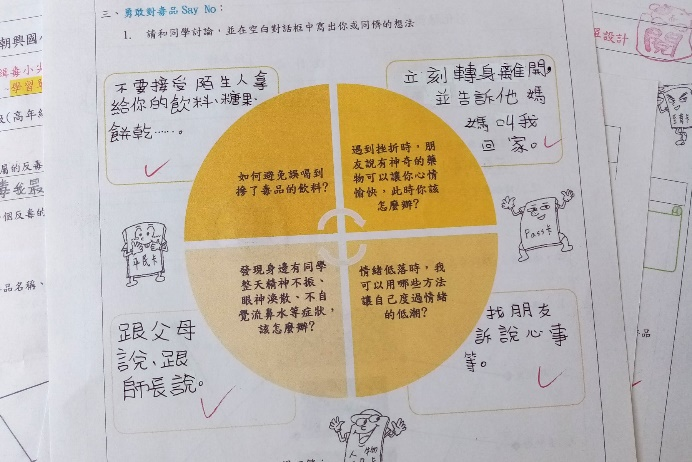 三、勇敢對毒品 Say No：
1. 請和同學討論，並在空白對話框中寫出你或同儕的想法
不要接受陌生人拿
給你的飲料、糖果、
餅乾……。
立刻轉身離開，
並告訴他媽
媽叫我
回家。
如何避免誤喝到
摻了毒品的飲料?
遇到挫折時，朋
友說有神奇的藥
物可以讓你心情
愉快，此時你該
怎麼辦?
發現身邊有同學
整天精神不振、
眼神渙散、不自
覺流鼻水等症狀，
該怎麼辦?
情緒低落時，我
可以用哪些方法
讓自己度過情緒
的低潮?
跟父母
說、跟
師長說。
找朋友
訴說心事
等。
平民卡
Pass卡
朝興國
學習單
設計
品名稱、